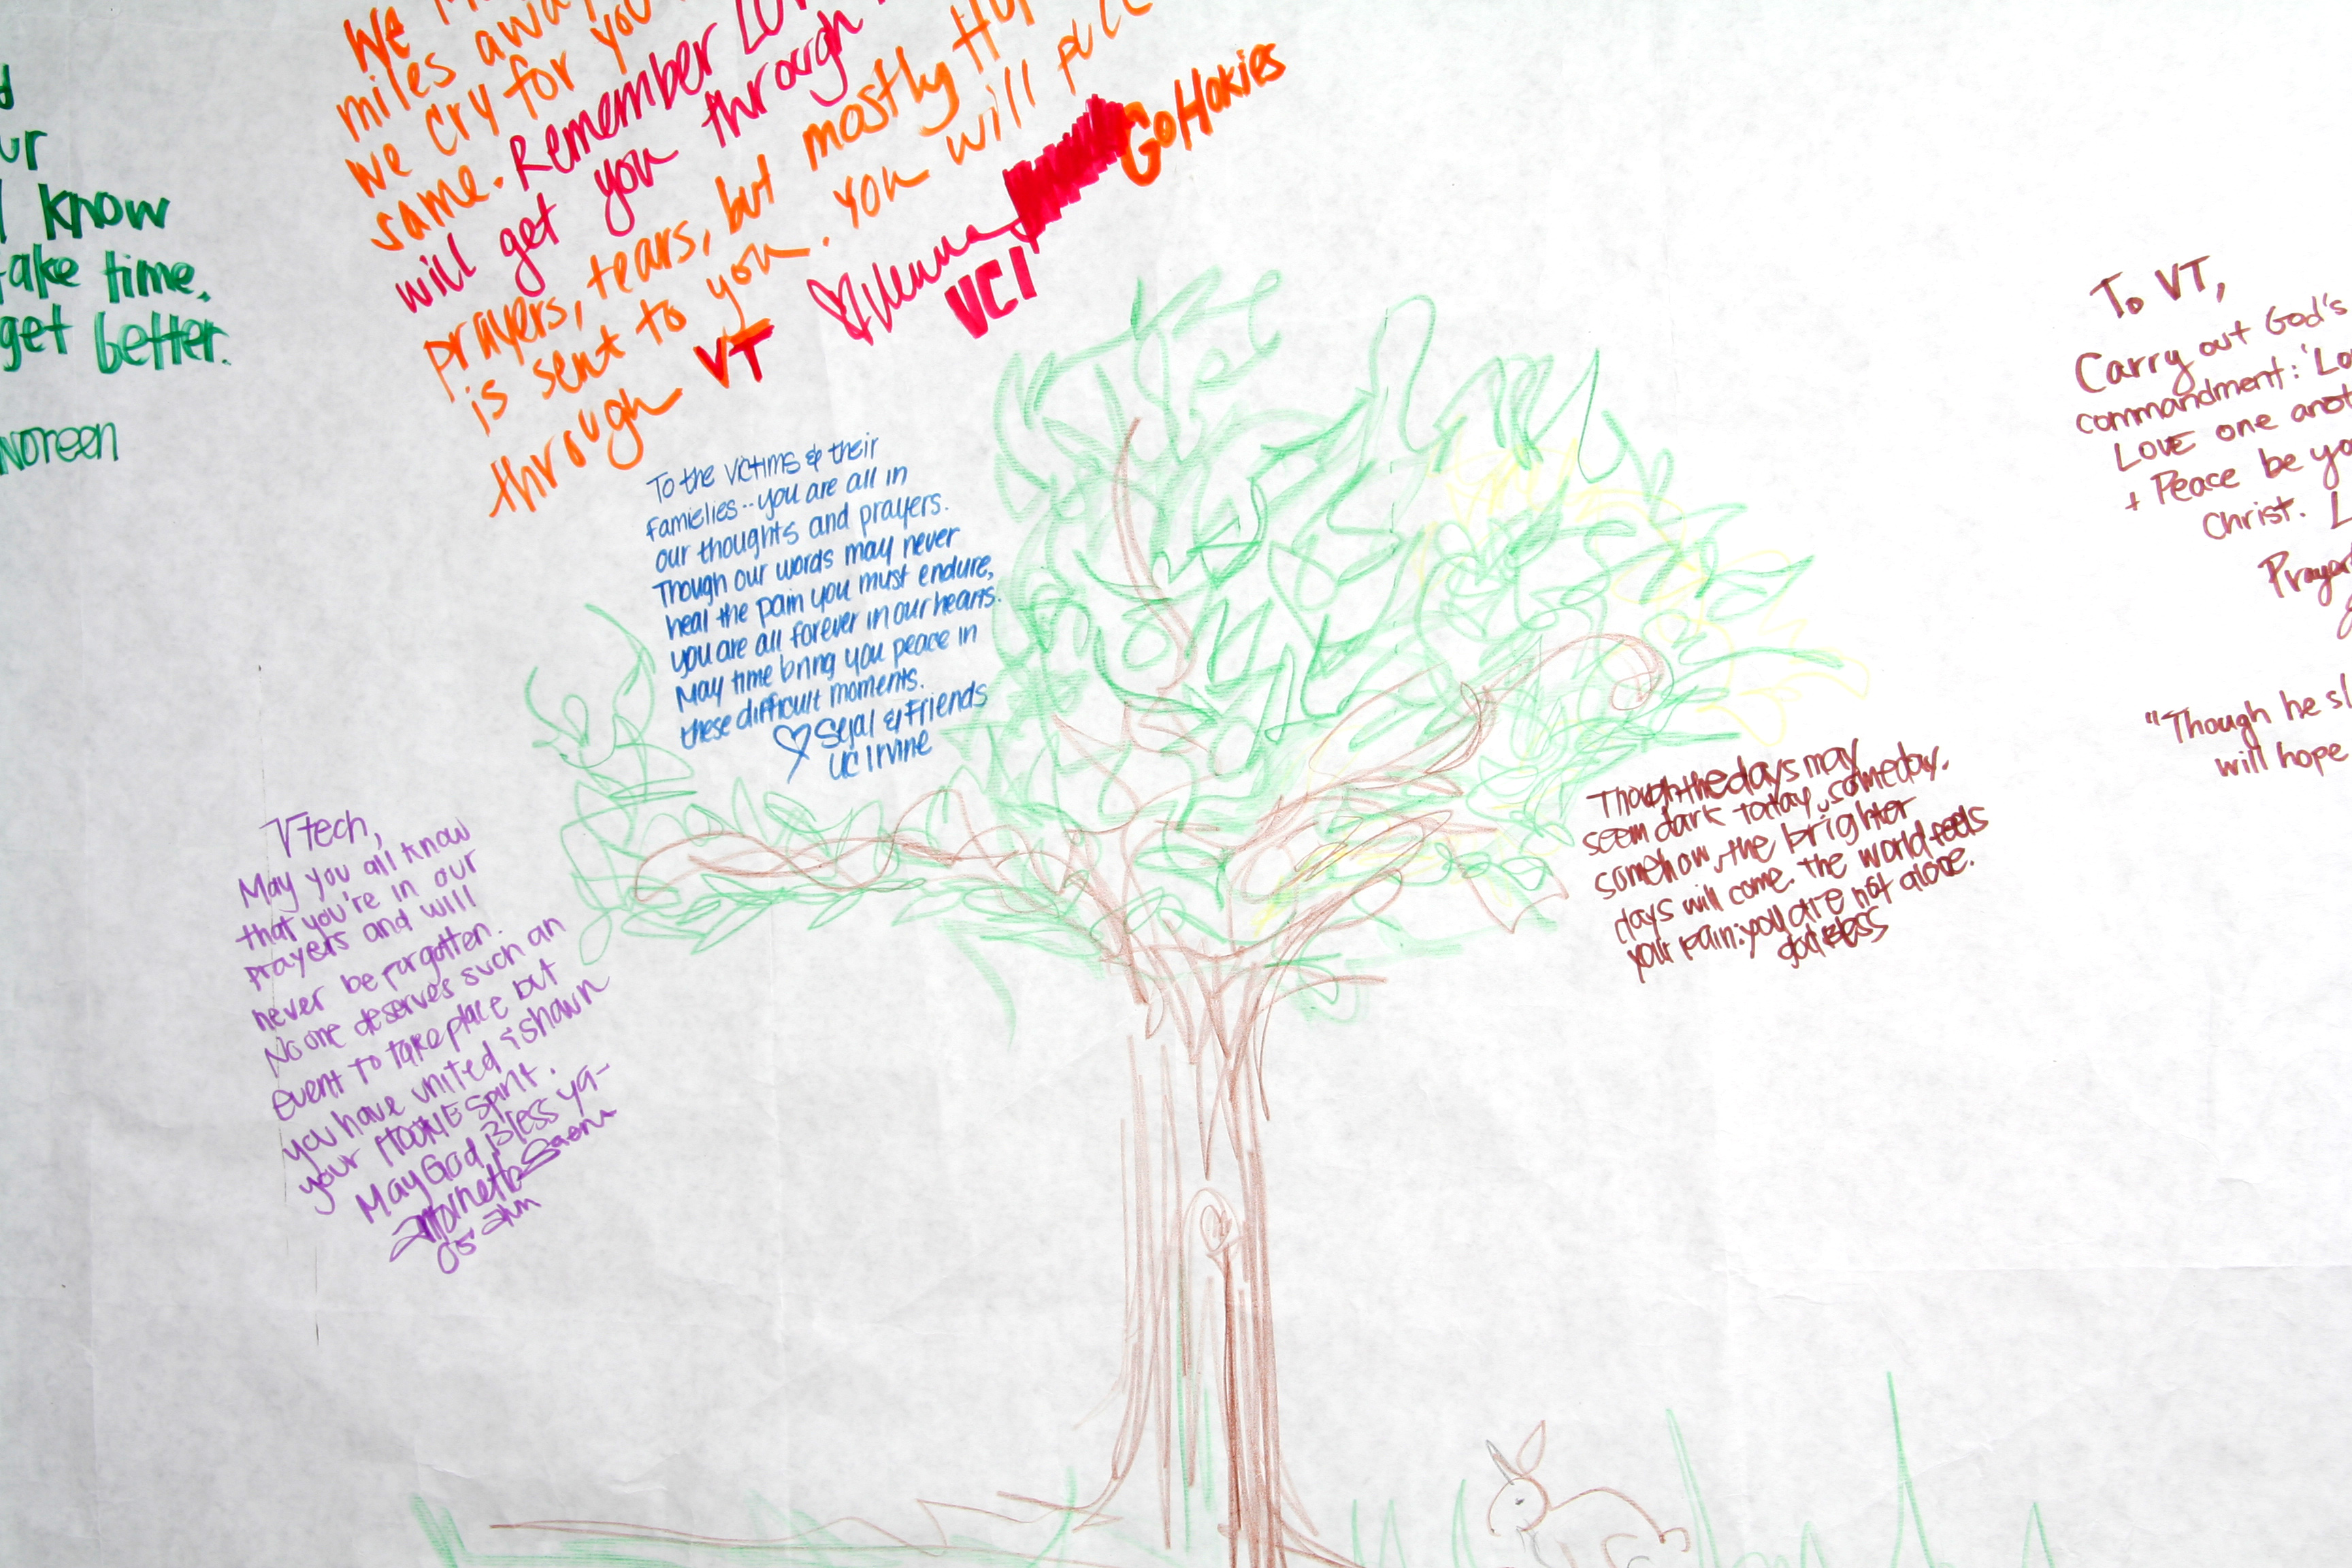 ur
know
take time.
get better.
Noreen
We
miles away
we cry for you
same. Remember
will get you through
prayers, tears, but mostly
is sent to you. You will
through VT
Go Hokies
VCI
To the victims & their
famielies -- you are all in
our thoughts and prayers.
Though our words may never
heal the pain you must endure,
you are all forever in our hearts.
May time bring you peace in
these difficult moments.
♡ Sejal & Friends
UC Irvine
Vtech,
May you all know
that you're in our
prayers and will
never be forgotten.
No one deserves such an
event to take place but
you have united & shown
your HOKIE Spirit.
May God Bless ya-
Though the days may
seem dark today, someday,
somehow, the brighter
days will come. The world feels
your pain: you are not alone.
God Bless
To VT,
Carry out God's
commandment: 'Lo
Love one anot
+ Peace be yo
Christ. L
Prayer
"Though he sl
will hope